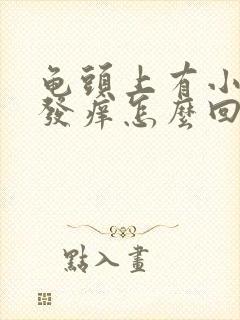 龟頭上有小
發痒怎麼回
點入畫